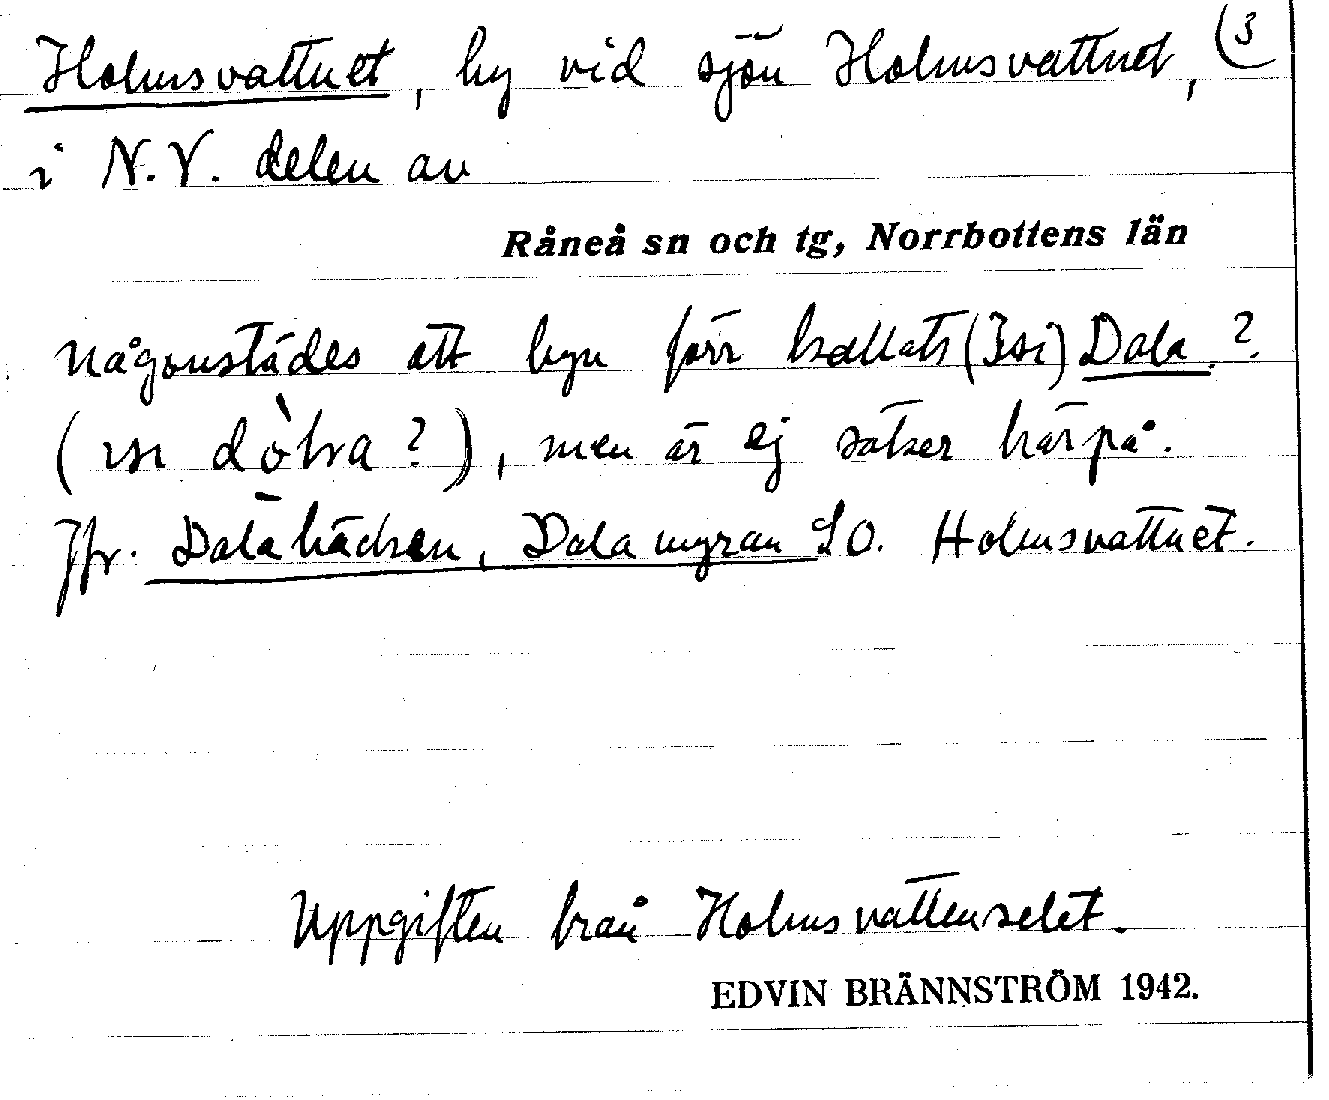 Holmsvattnet, by vid sjön Holmsvattnet, (3
i N.V. delen av
Råneå sn och tg, Norrbottens län
någonstädes att byn förr kallats Dala ?
( dòla ?), men är ej säker härpå.
Jfr. Dalabäcken, Dalamyran SO. Holmsvattnet.
Uppgiften från Holmsvattenselet.
EDVIN BRÄNNSTRÖM 1942.